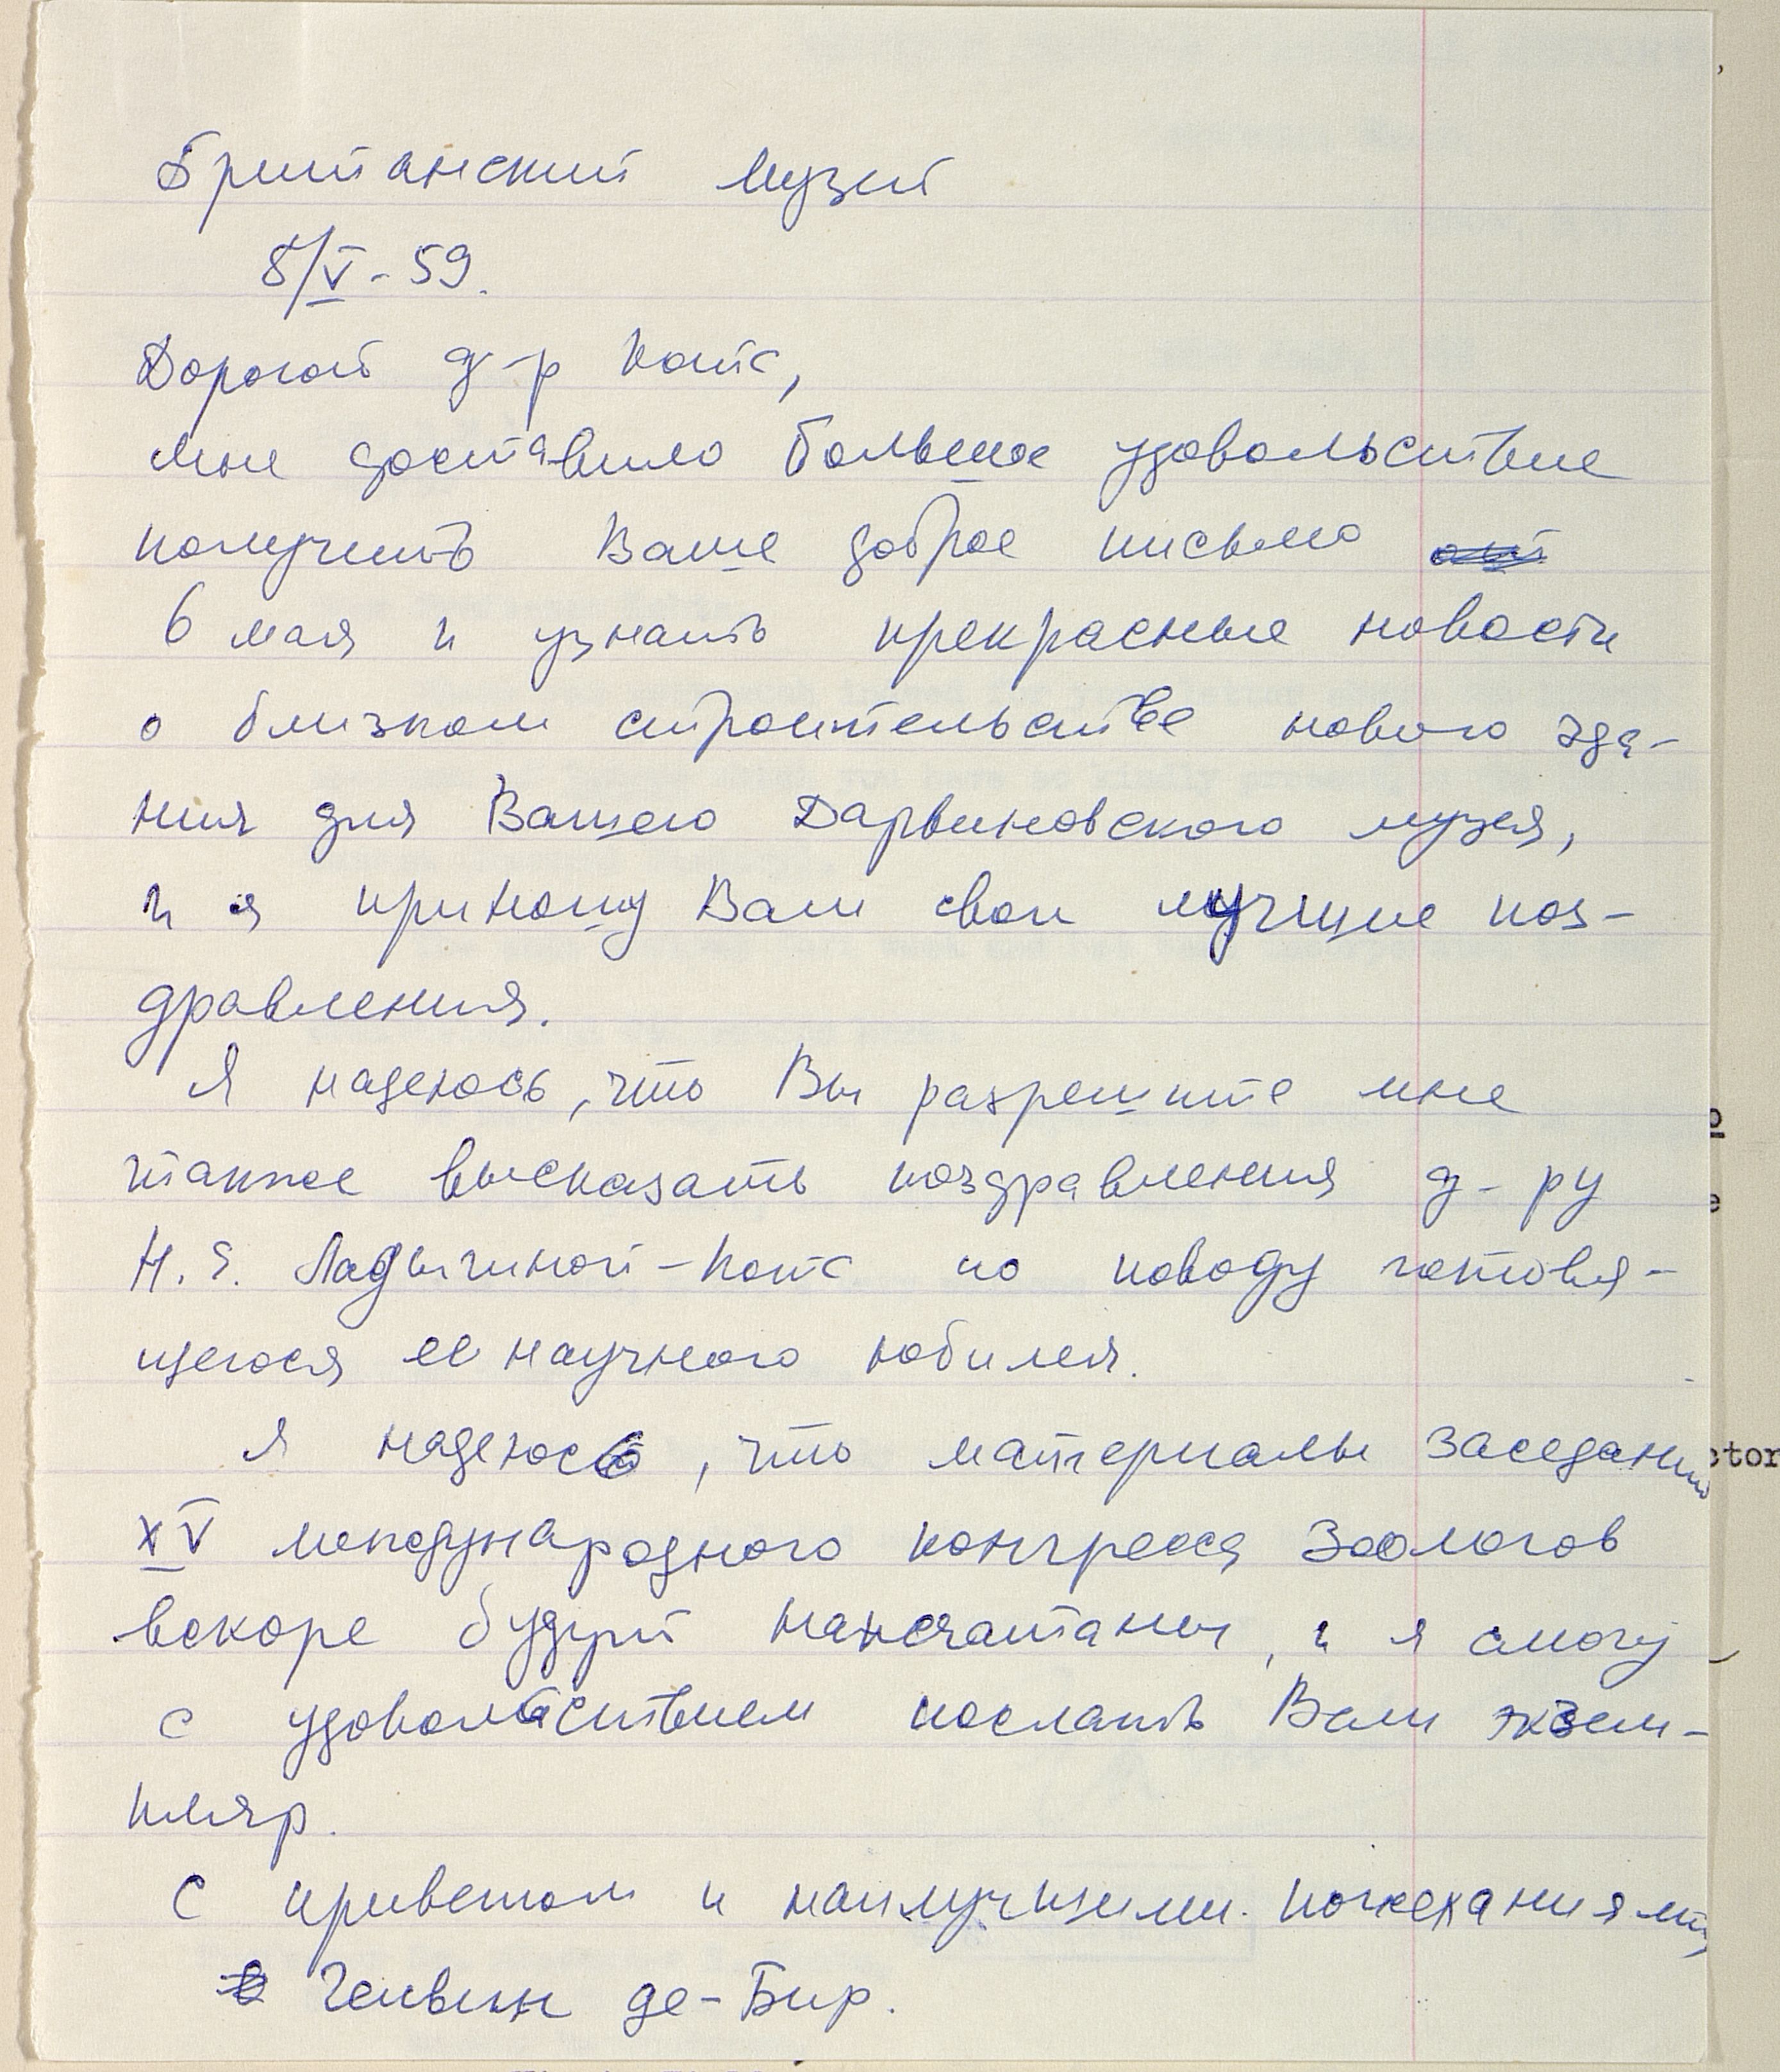 Британский Музей
8/V - 59.
Дорогой д-р Котс,
мне доставило большое удовольствие
получить Ваше доброе письмо
6 мая и узнать прекрасные новости
о близком строительстве нового зда-
ния для Вашего Дарвиновского музея,
и я приношу Вам свои лучшие поз-
дравления.
Я надеюсь, что Вы разрешите мне
также высказать поздравления д-ру
Н. Н. Ладыгиной-Котс по поводу готовя-
щегося ее научного юбилея.
Я надеюсь, что материалы заседаний
XV международного конгресса Зоологов
вскоре будут напечатаны, и я смогу
с удовольствием послать Вам экзем-
пляр.
С приветом и наилучшими пожеланиями
Гельвин де-Бир.
ctor